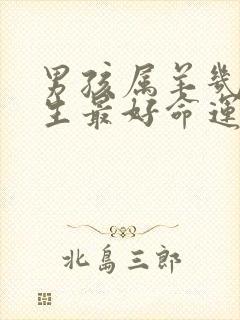 男孩属羊几
生最好命运
北島三郎